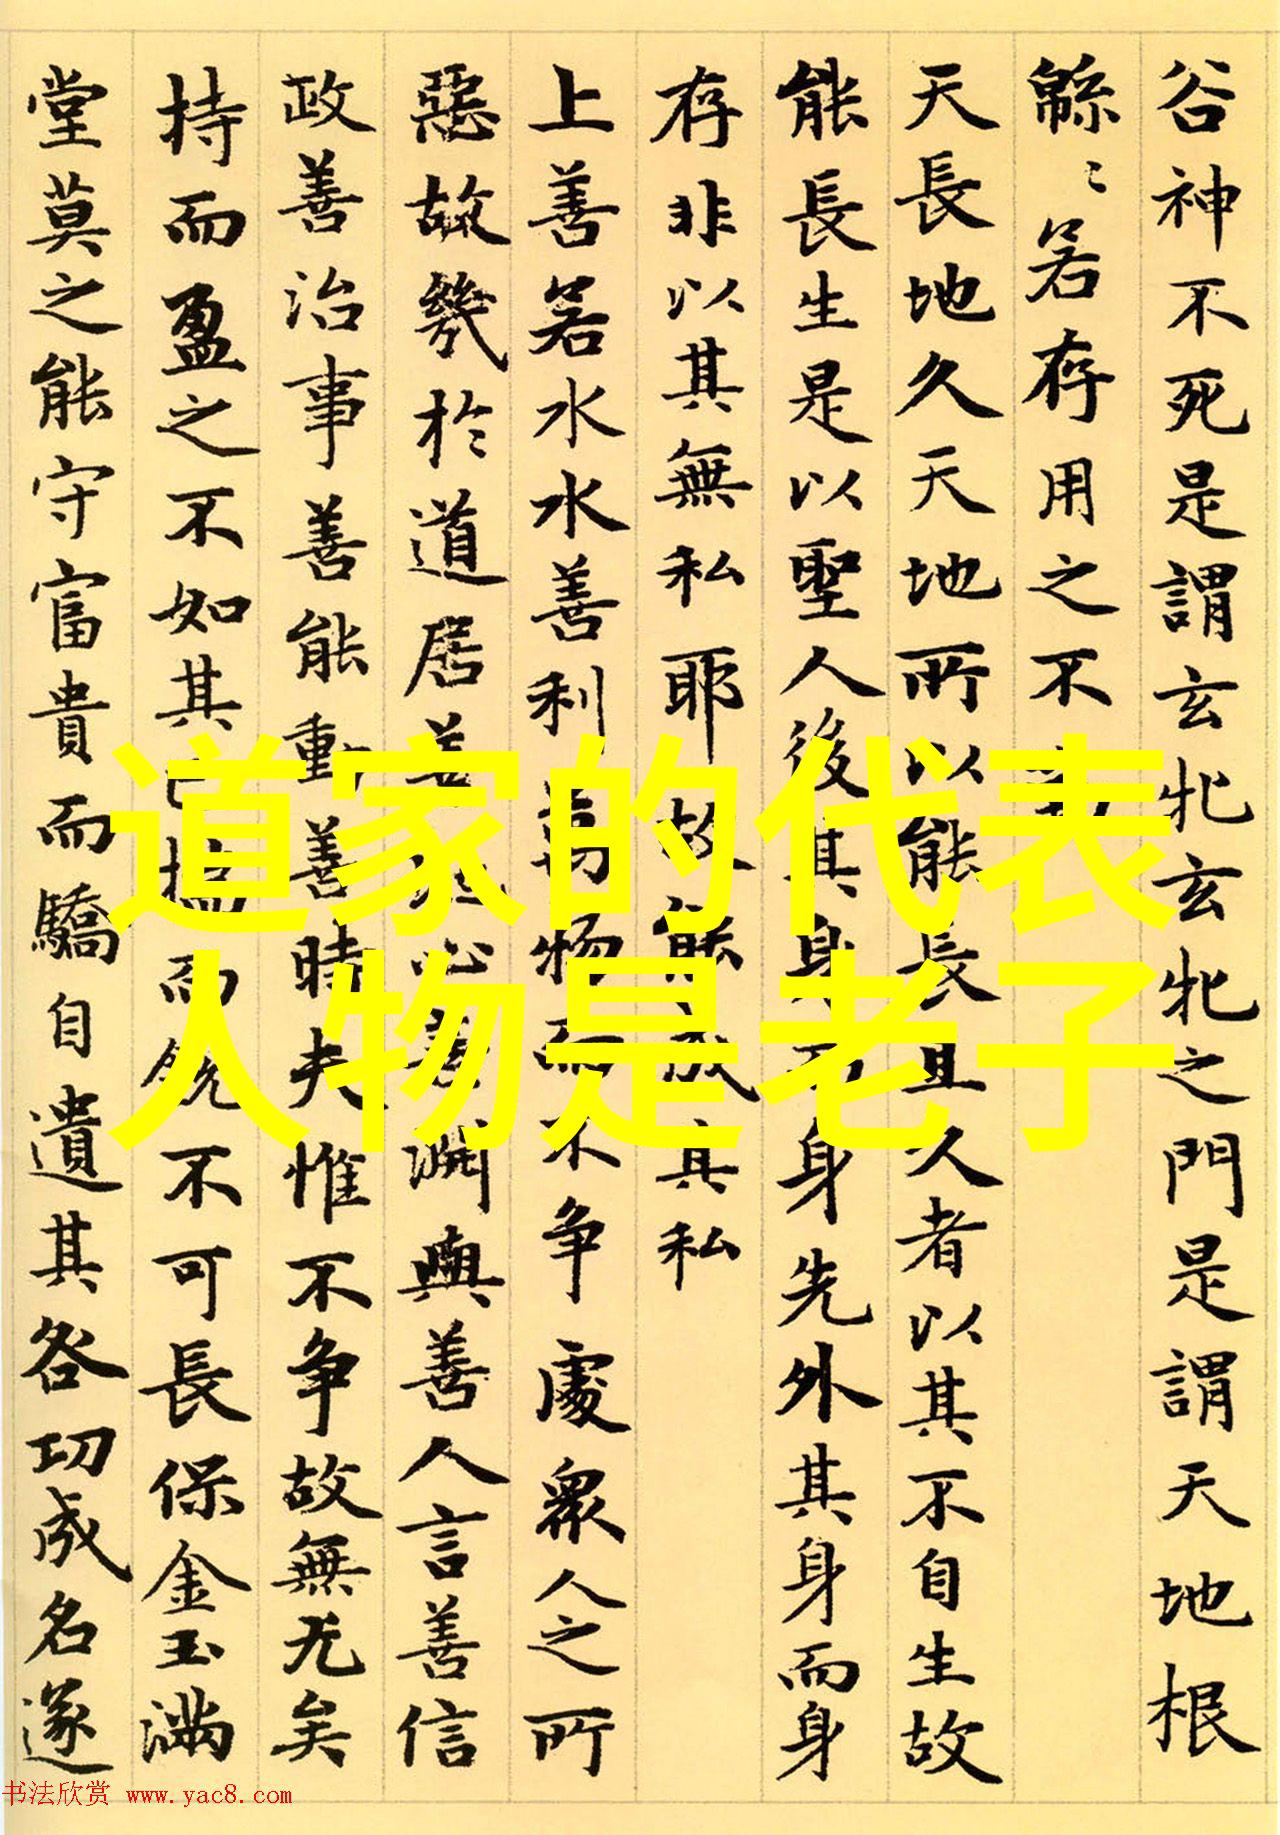 谷神不死是謂玄牝玄牝之門是謂天地根
緜〻若存用之不
天長地久天地所以能長且久者以其不自生故
能長生是以聖人後其身而身先外其身而身
存非以其無私耶故能成其私
上善若水水善利萬物而不争處衆人之所
惡故幾於道居善地心善淵與善人言善信
政善治事善能動善時夫惟不争故無尤矣
持而盈之不如其已揣而銳不可長保金玉滿
堂莫之能守富貴而驕自遺其咎功成名遂
道家的代表
人物是老子
书法欣赏 www.yac8.com